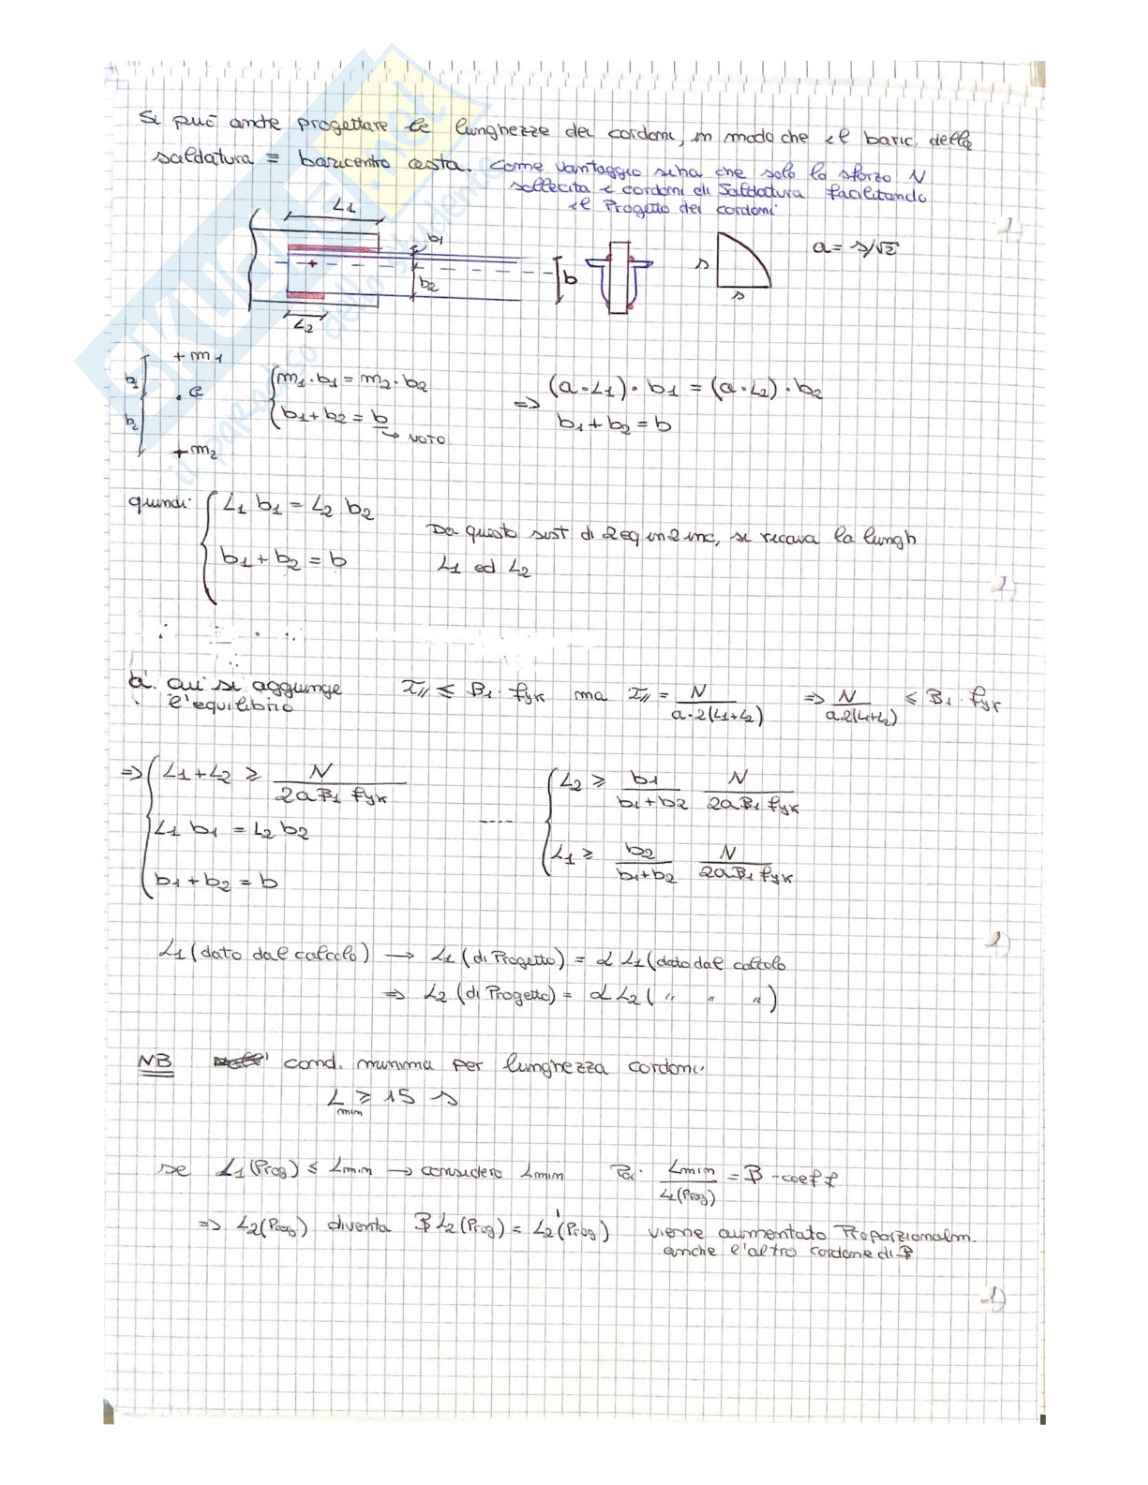 Si può anche progettare le lunghezze dei cordoni, in modo che il baric. della
saldatura = baricentro asta. Come vantaggio si ha che solo lo sforzo N
sollecita i cordoni di Saldatura facilitando
il Progetto dei cordoni
L1
b1
b2
b
L2
s
s
a = s/√2
1)
b1
b2
+ m1
. G
+ m2
m1 · b1 = m2 · b2
b1 + b2 = b
→ NOTO
⇒
(a · L1) · b1 = (a · L2) · b2
b1 + b2 = b
quindi:
L1 b1 = L2 b2
b1 + b2 = b
Da questo sist di 2 eq in 2 inc, si ricava la lungh
L1 ed L2
2)
a. qui si aggiunge
l'equilibrio
τ// ≤ β1 · fyk ma τ// = N / a·2(L1+L2) ⇒ N / a·2(L1+L2) ≤ β1 · fyk
⇒ L1 + L2 ≥ N / 2aβ1 fyk
L1 b1 = L2 b2
b1 + b2 = b
----
L2 ≥ b1 / b1+b2 N / 2aβ1 fyk
L1 ≥ b2 / b1+b2 N / 2aβ1 fyk
2)
L1 (dato dal calcolo) → L1 (di Progetto) = α L1 (dato dal calcolo
⇒ L2 (di Progetto) = α L2 ( " " " )
NB cond. minima per lunghezza cordoni.
Lmin ≥ 15 s
se L1 (Prog) ≤ Lmin → considero Lmin Poi. Lmin / L1(Prog) = β - coeff
⇒ L2 (Prog) diventa β L2 (Prog) = L2' (Prog) viene aumentato Proporzionalm.
anche l'altro cordone di β
-1)